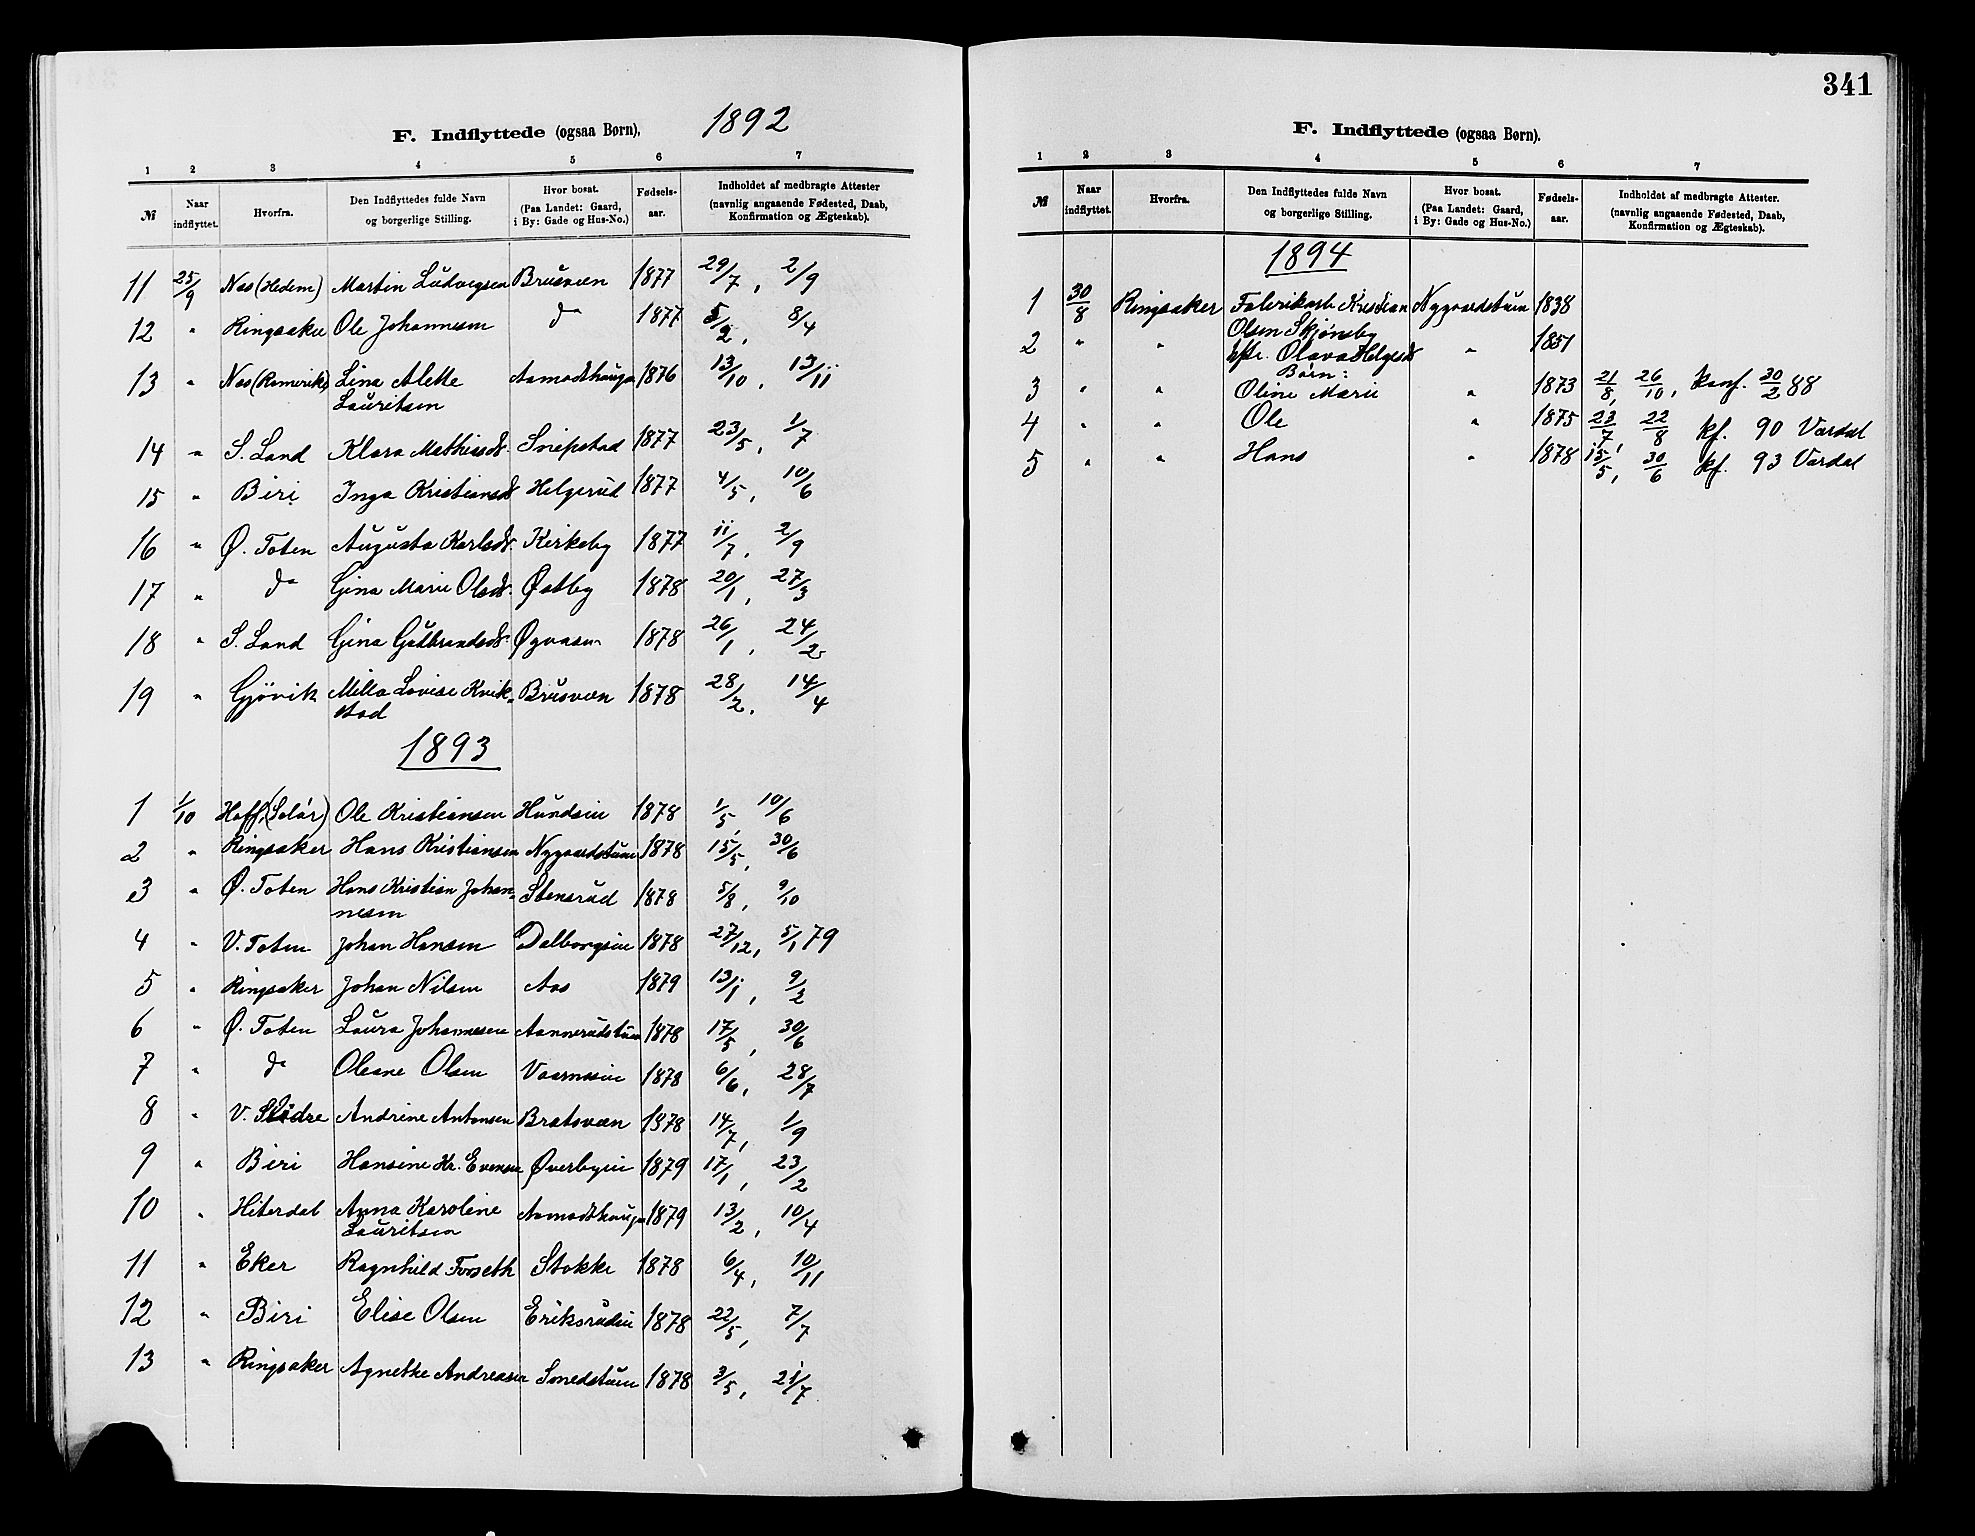 F. Indflyttede (ogsaa Børn), 1892
1 2 3 4 5 6 7
№ Naar indflyttet. Hvorfra. Den Indflyttedes fulde Navn og borgerlige Stilling. Hvor bosat. (Paa Landet: Gaard, i By: Gade og Hus-No.) Fødsels-aar. Indholdet af medbragte Attester (navnlig angaaende Fødested, Daab, Konfirmation og Ægteskab).
11 25/9 Nes (Hedem) Martin Ludvigsen Brusveen 1877 29/7, 2/9
12 " Ringsaker Ole Johannesen do 1877 5/2, 8/4
13 " Nes (Romerike) Lina Alette Aamodthaugen 1876 13/10, 13/11
Lauritsen
14 " S. Land Klara Mathisd. Snepstad 1877 23/5, 1/7
15 " Biri Inga Kristiansd. Helgerud 1877 4/5, 10/6
16 " Ø. Toten Augusta Karlsd. Kirkeby 1877 11/7, 2/9
17 " do Gina Marie Olsd. Østby 1878 20/1, 27/3
18 " S. Land Gina Gulbrandsd. 1878 26/1, 24/2
19 " Gjövik Milla Lovise Kvik- Brusveen 1878 28/2, 14/4
stad
1893
1 1/10 Hoff, (Solör) Ole Kristiansen Hundseie 1878 1/5, 10/6
2 " Ringsaker Hans Kristiansen Nygaardstuen 1878 15/5, 30/6
3 " Ø. Toten Hans Kristian Johan- Stensrud 1878 5/8, 9/10
nesen
4 " V. Toten Johan Hansen Dalborgeie 1878 27/12, 5/1 79
5 " Ringsaker Johan Nilsen Aas 1879 13/1, 9/2
6 " Ø. Toten Laura Johannesen Aannerudstuen 1878 17/5, 30/6
7 " do Oleane Olsen 1878 6/6, 28/7
8 " V. Slidre Andrine Antonsen Bratsveen 1878 14/7, 1/9
9 " Biri Hansine Kr. Evensen Øverbyeie 1879 17/1, 23/2
10 " Hiterdal Anna Karoline Aamodthaugen 1879 13/2, 10/4
Lauritsen
11 " Eker Ragnhild Forseth Stokke 1878 6/4, 10/11
12 " Biri Elise Olsen Eriksrudeie 1878 22/5, 7/7
13 " Ringsaker Agnethe Andreasen Smedstuen 1878 3/5, 21/7
341
F. Indflyttede (ogsaa Børn).
1 2 3 4 5 6 7
№ Naar indflyttet. Hvorfra. Den Indflyttedes fulde Navn og borgerlige Stilling. Hvor bosat. (Paa Landet: Gaard, i By: Gade og Hus-No.) Fødsels-aar. Indholdet af medbragte Attester. (navnlig angaaende Fødested, Daab, Konfirmation og Ægteskab).
1894
1 30/8 Ringsaker Fabrikarb. Kristian Nygaardstuen 1838
Olsen Skjønsby
2 " " Olava Helgesd. " 1851
Børn:
3 " " Oline Marie " 1873 21/8, 26/10, konf. 30/2 88
4 " " Ole " 1875 23/7, 22/8 kf. 90 Vardal
5 " " Hans " 1878 15/5, 30/6 kf. 93 Vardal